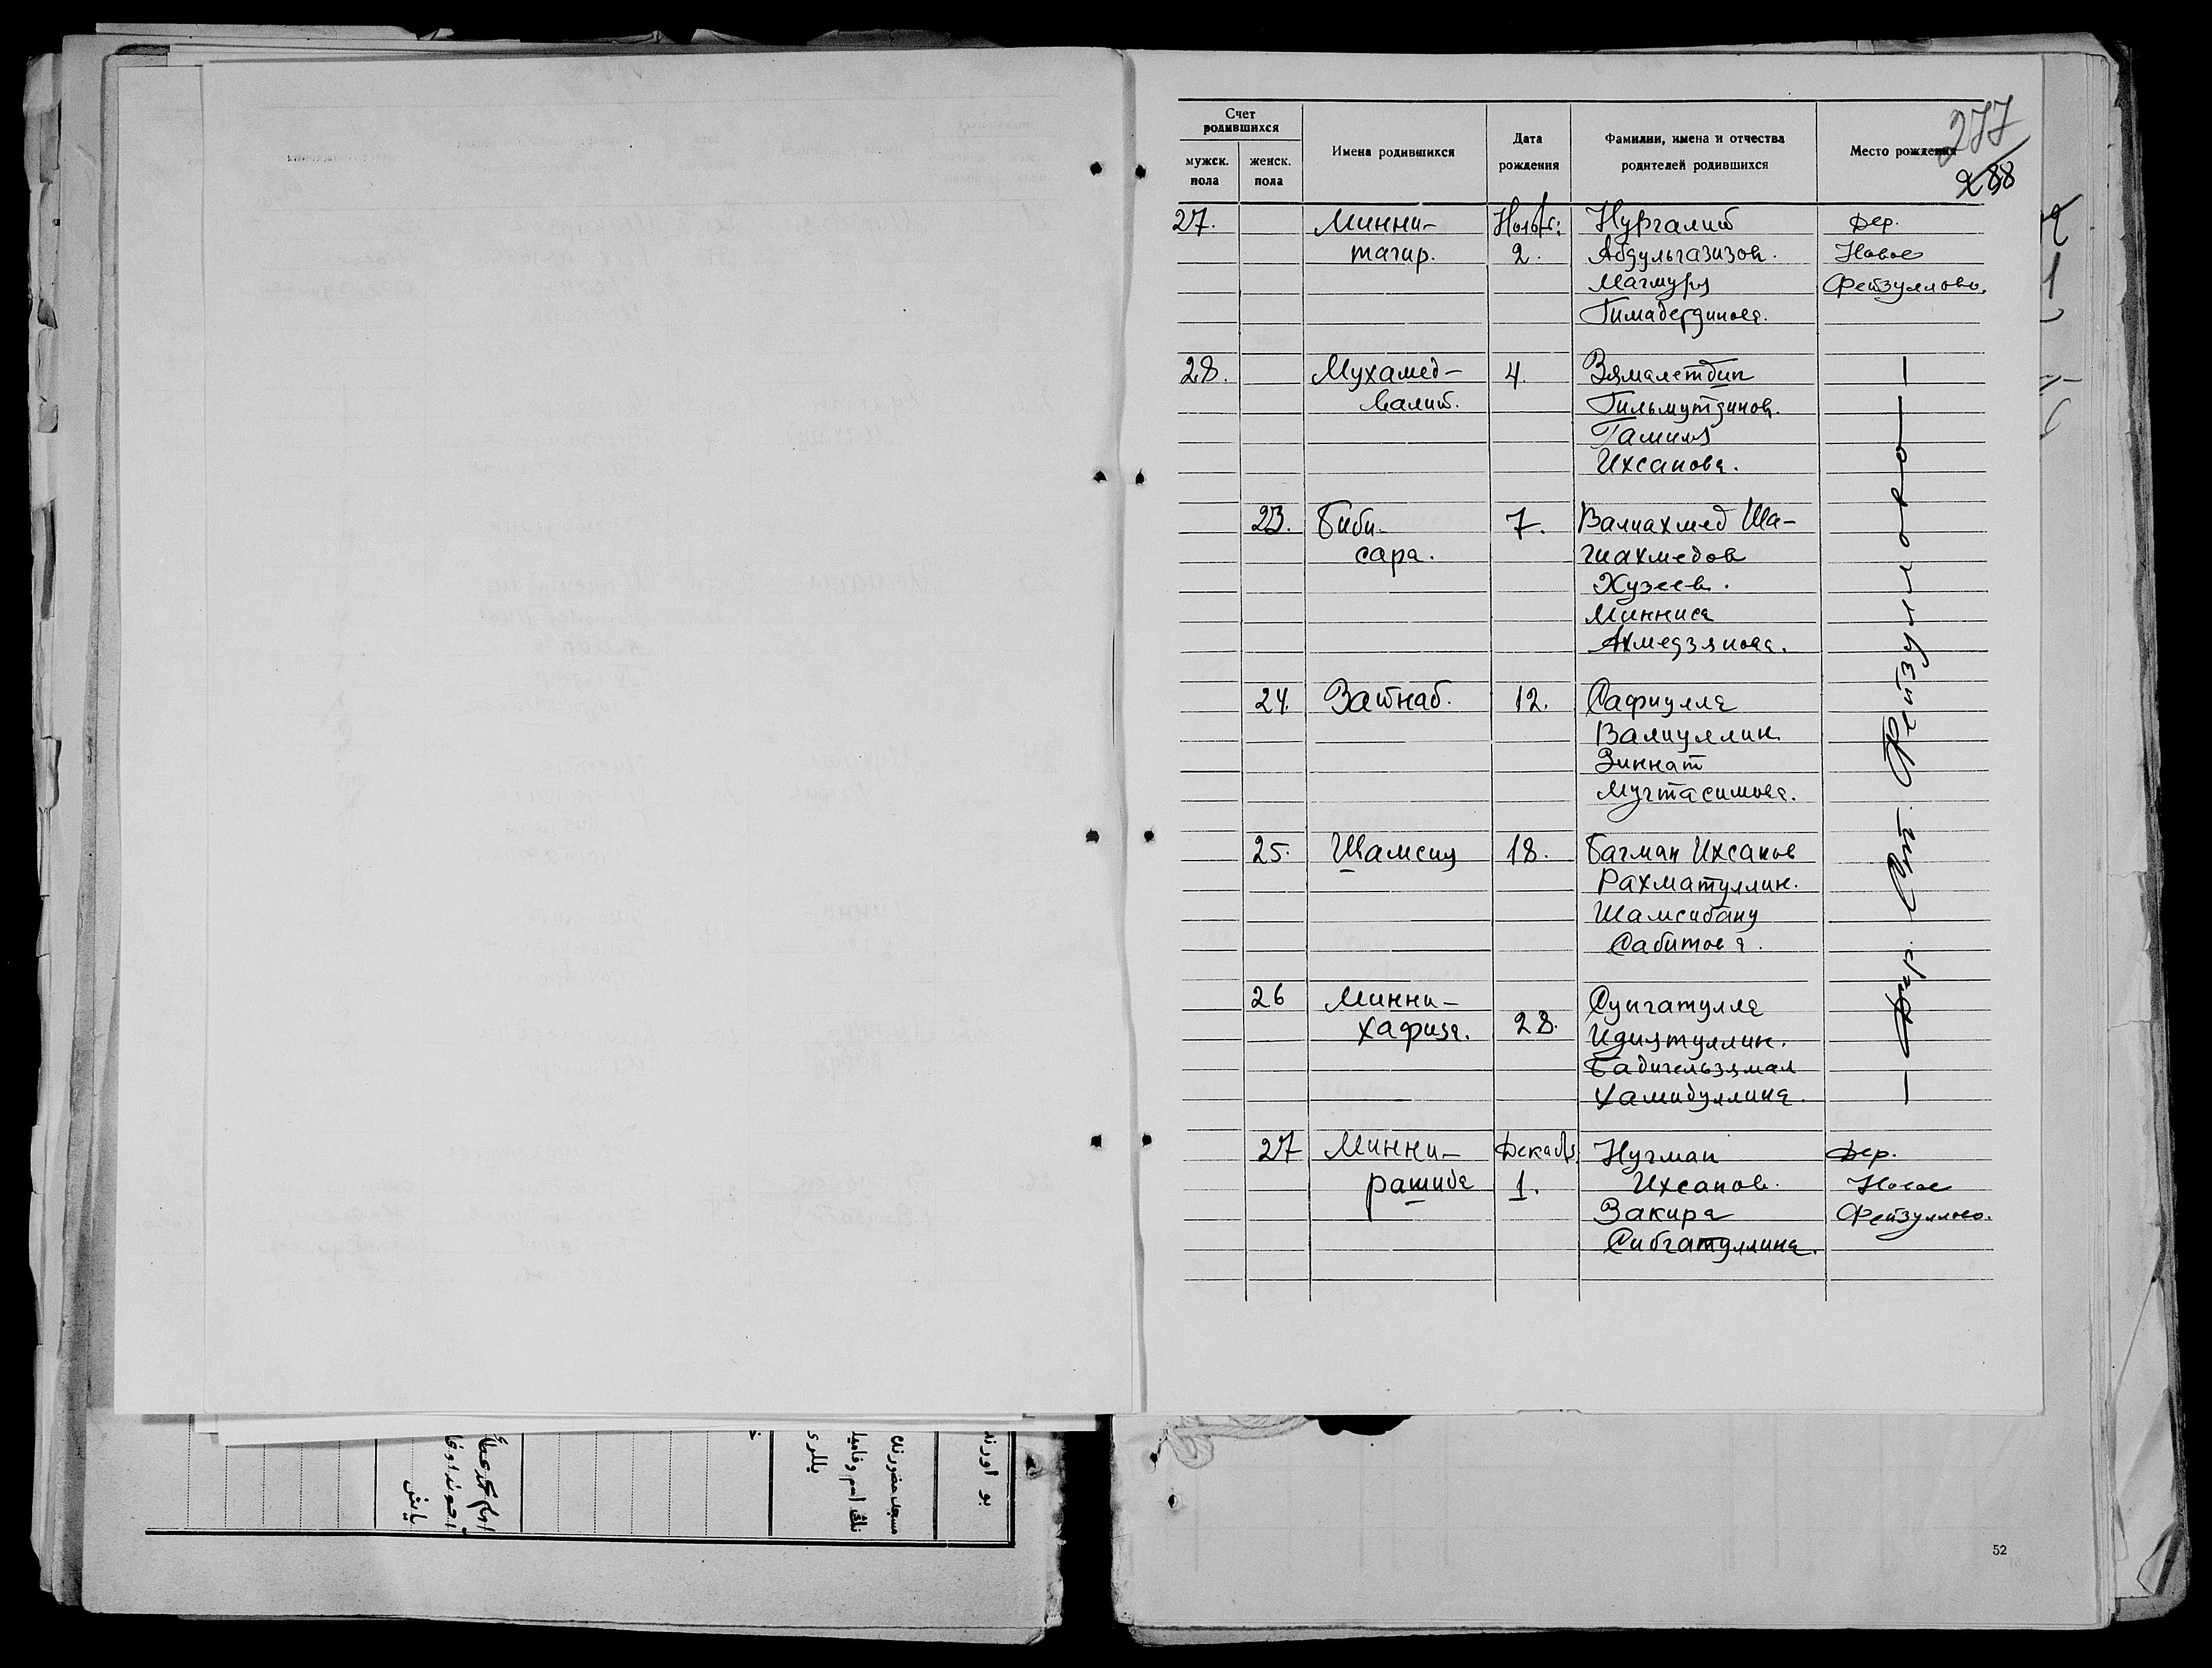 Счет родившихся
мужск. пола
женск. пола
Имена родившихся
Дата рождения
Фамилии, имена и отчества родителей родившихся
Место рождения
277
288
27. Минни- Ноябр: Нургалий дер.
тагир. 2. Абдульгазизов. Новое
Магмуря Фейзуллово.
Гимадердинова.
28. Мухамед- 4. Зямалетдин —
валий. Гильмутдинов.
Гамиля
Ихсанова.
23. Биби- 7. Валиахмед Ша-
сара. гиахмедов
Хузеев.
Минниса
Ахмедзянова.
24. Зайнаб. 12. Сафиулла
Валиуллин
Зиннат
Мугтасимова.
25. Шамсия 18. Багман Ихсанов
Рахматуллин.
Шамсибану
Сабитова.
26 Минни- Сунгатулла
хафиза. 28. Идиятуллин.
Бадигельзямал
Хамидуллина.
27 Минни- Декабр. Нугман дер.
рашида 1. Ихсанов. Новое
Закира Фейзуллово.
Сибгатуллина.
52
بو اورند
مسجد حضورنده
نڭ اسم و فاميل
يللرى